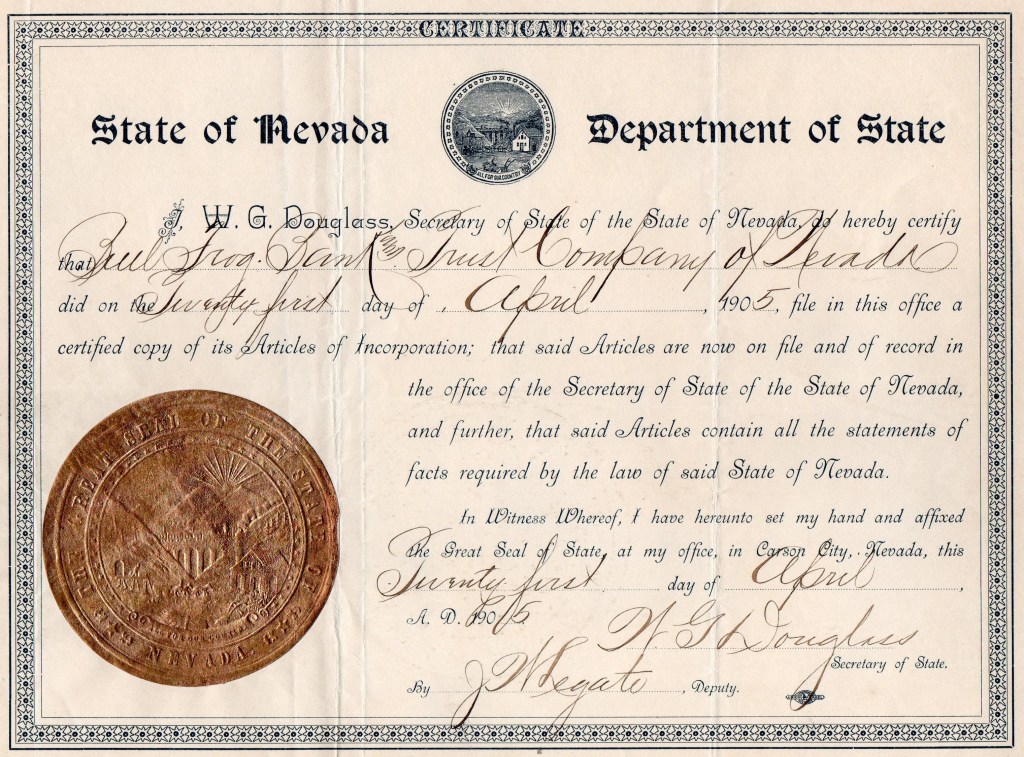 CERTIFICATE
State of Nevada
ALL FOR OUR COUNTRY
Department of State
I, W. G. Douglass, Secretary of State of the State of Nevada, do hereby certify
that Bull Frog Bank and Trust Company of Nevada
did on the Twenty first day of April, 1905, file in this office a
certified copy of its Articles of Incorporation; that said Articles are now on file and of record in
the office of the Secretary of State of the State of Nevada,
and further, that said Articles contain all the statements of
facts required by the law of said State of Nevada.
THE GREAT SEAL OF THE STATE OF NEVADA
In Witness Whereof, I have hereunto set my hand and affixed
the Great Seal of State, at my office, in Carson City, Nevada, this
Twenty first day of April,
A. D. 1905.
W G Douglass
Secretary of State.
By J W Legate, Deputy.